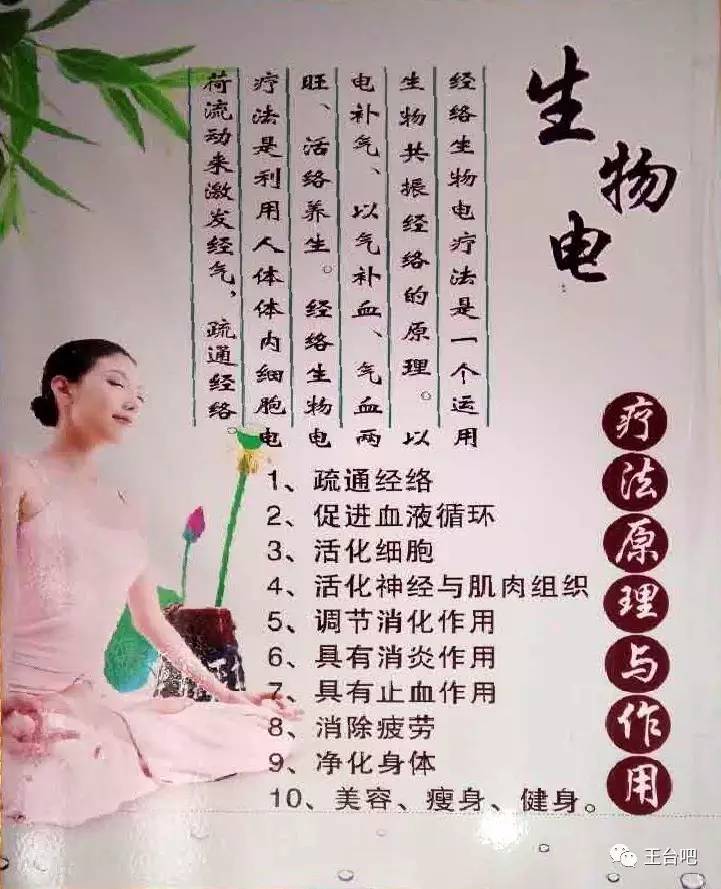 生物电
疗法原理与作用
经络生物电疗法是一个运用
生物共振经络的原理。以
电补气、以气补血、气血两
旺、活络养生。经络生物电
疗法是利用人体体内细胞电
荷流动来激发经气，疏通经络。
1、疏通经络
2、促进血液循环
3、活化细胞
4、活化神经与肌肉组织
5、调节消化作用
6、具有消炎作用
7、具有止血作用
8、消除疲劳
9、净化身体
10、美容、瘦身、健身。
王台吧